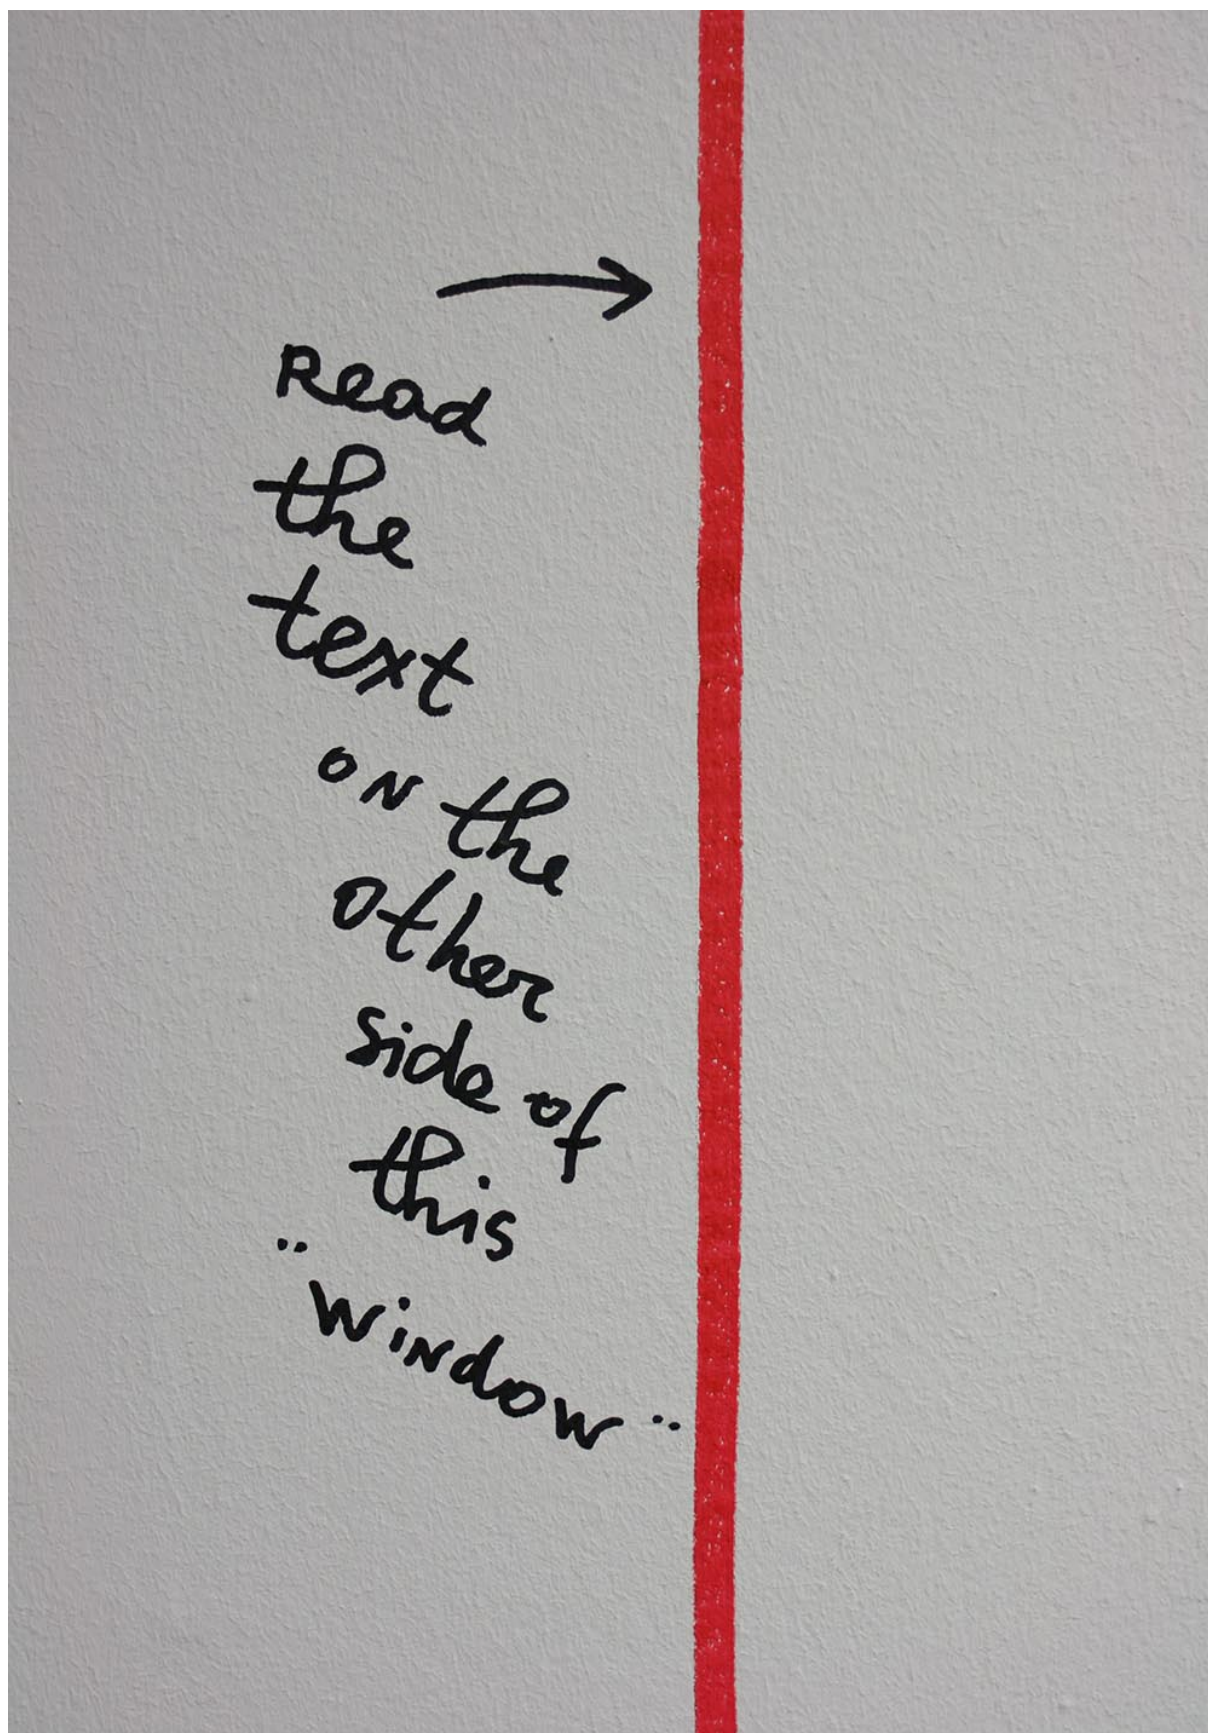 Read
the
text
on the
other
side of
this
"window"